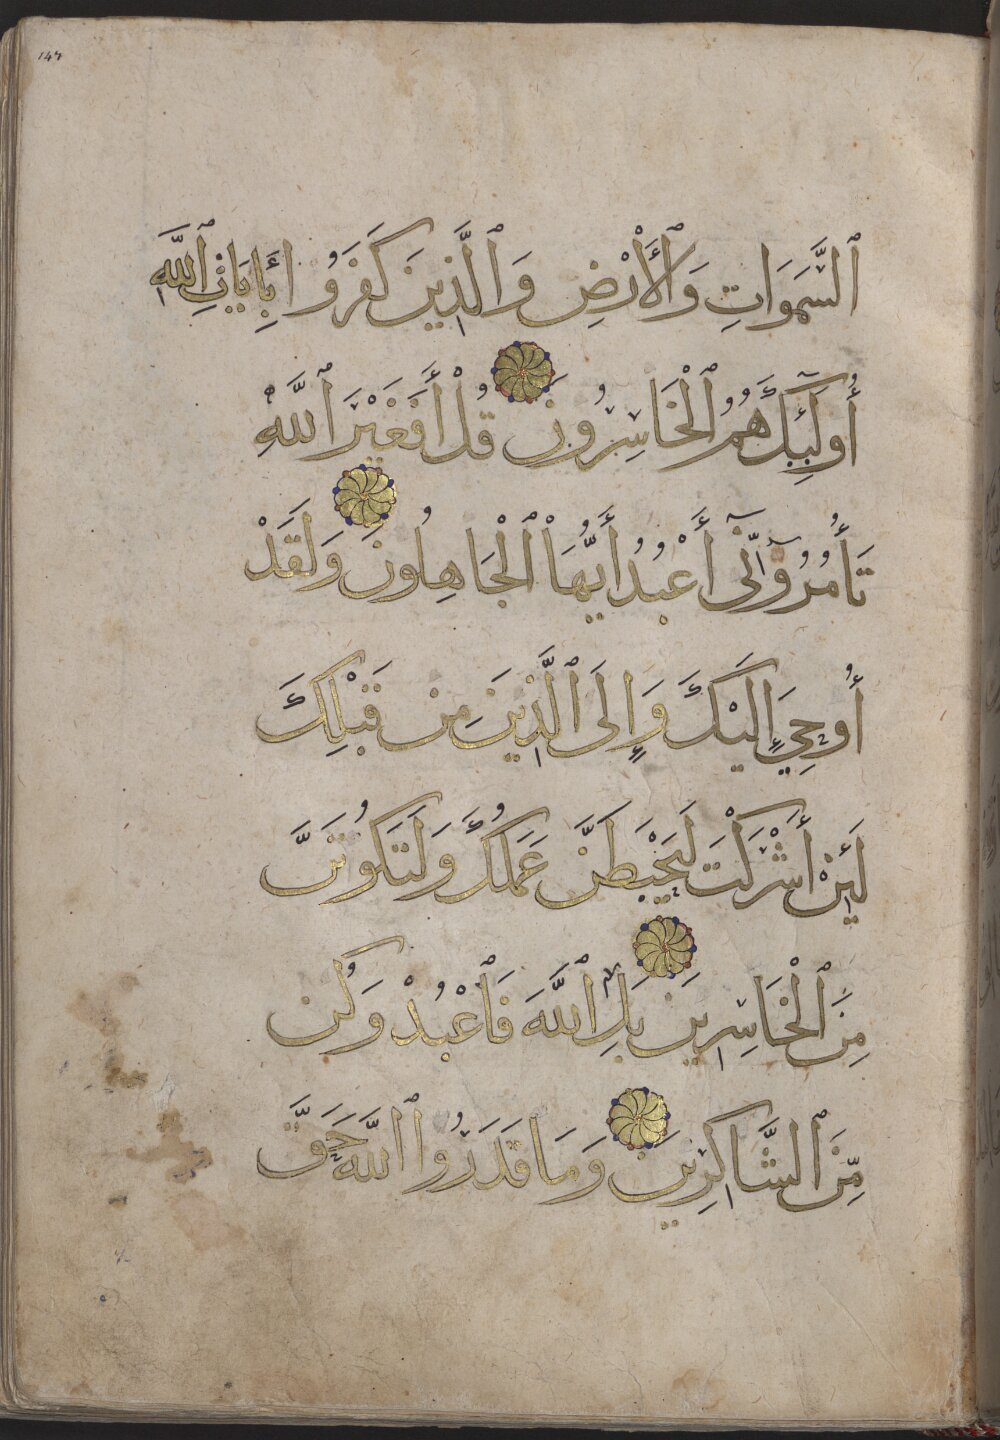 ٱلسَّمَوَاتِ وَٱلْأَرْضِ وَٱلَّذِينَ كَفَرُوا بِـَٔايَاتِ ٱللَّهِ
أُولَٰٓئِكَ هُمُ ٱلْخَاسِرُونَ قُلْ أَفَغَيْرَ ٱللَّهِ
تَأْمُرُوٓنِّىٓ أَعْبُدُ أَيُّهَا ٱلْجَاهِلُونَ وَلَقَدْ
أُوحِيَ إِلَيْكَ وَإِلَى ٱلَّذِينَ مِن قَبْلِكَ
لَئِنْ أَشْرَكْتَ لَيَحْبَطَنَّ عَمَلُكَ وَلَتَكُونَنَّ
مِنَ ٱلْخَاسِرِينَ بَلِ ٱللَّهَ فَٱعْبُدْ وَكُن
مِّنَ ٱلشَّاكِرِينَ وَمَا قَدَرُوا ٱللَّهَ حَقَّ